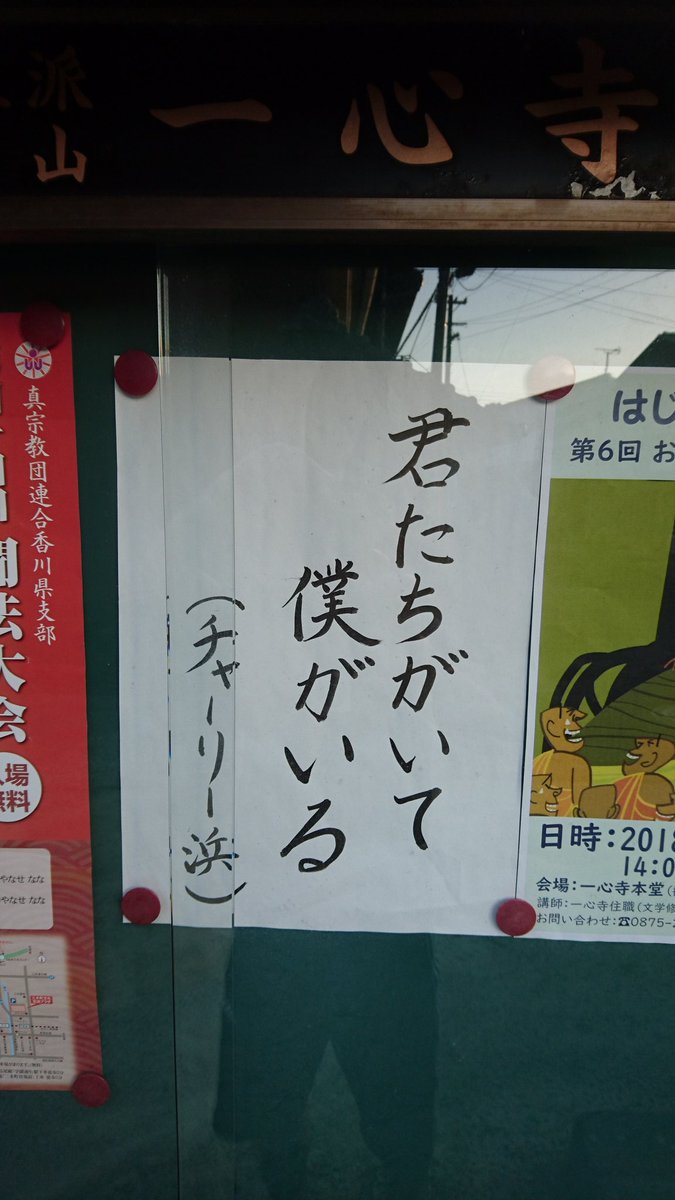 派
山
一心寺
君たちがいて
僕がいる
(チャーリー浜)
真宗教団連合香川県支部
聞法大会
場
無料
やなせ なな
やなせ なな
はじ
第6回 お
日時:2018
14:0
会場:一心寺本堂
講師:一心寺住職(文学修
お問い合わせ:☎0875-2